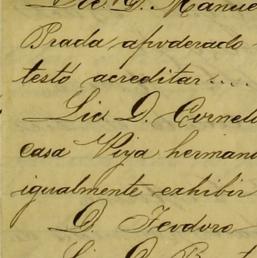 Lic. D. Manue
Prada, apoderado
testó acreditar....
Lic. D. Cornel
casa Viya herman
igualmente exhibir
D. Teodoro
Lic. D.